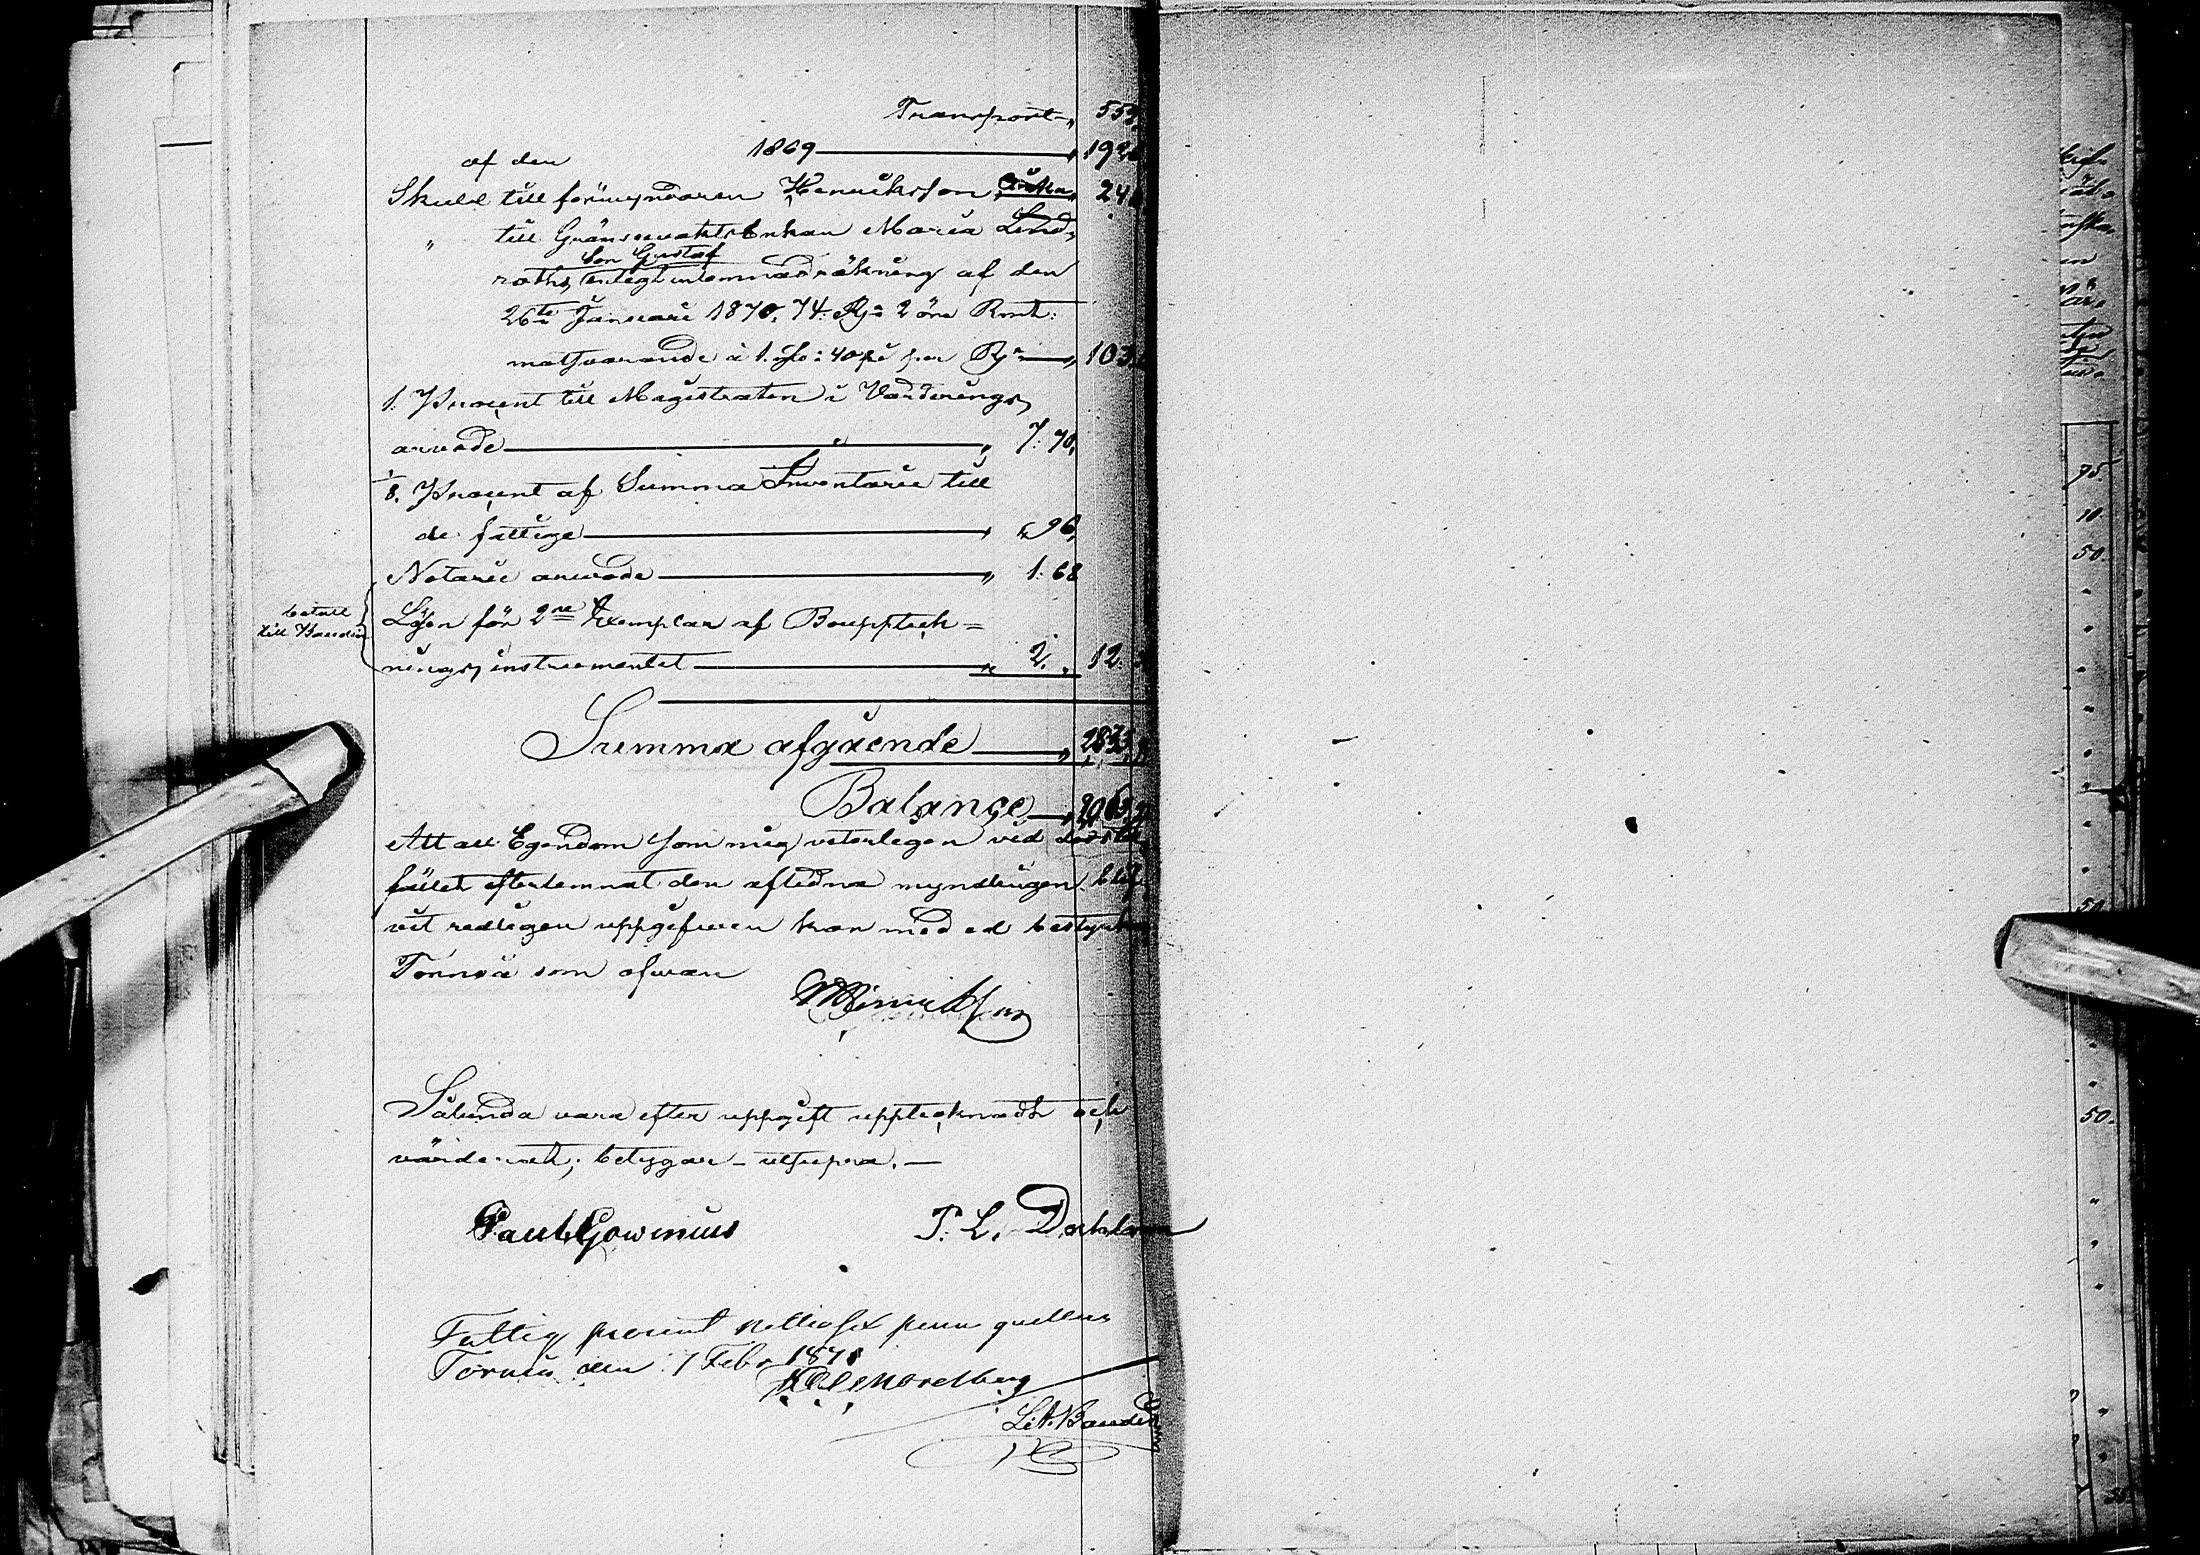 Transport „ 553
af den 1869 „ 192
Skuld till förmyndaren Henriksson „ 24
„ till Gränsevakts Enkan Maria Lind
son Gustaf
roths, enligt inlemnad räkning af den
26te Januari 1870, 74. Rj 2 öre Rmt:
motsvarande à 1. : 40 pi per Rj „ 103
1. Procent till Magistraten i Värderings
arvode „ 7: 70,
1/8. Procent af Summa Inventarie till
de fattige „ 96,
Notarie arvode „ 1: 68
betalt
till Baudin
Lösen för 2ne Exemplar af Bouppteck=
nings instrumentet „ 2. „ 12.
Summa afgående „ 283
Balance „
Att all Egendom som mig veterligen ved dödsbo
fallet efterlemnat den aflidna myndlingen blif
vit redligen uppgifven kan med ed bestyrka
Torneå som ofvan
Henriksson
Sålunda vara efter uppgift upptecknadt och
värderadt; betygar utsupra.
Paul Gowinius P. L. Dahlman
Fattig procent nittiosex penni qvitteras
Torneå den 7 Feb 1871
Nordberg
L. A. Baudin
75.
10
50.
50
50.